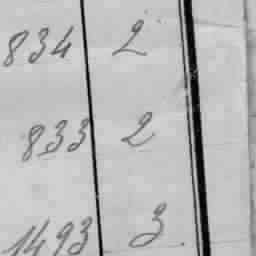 834 2
833 2
1493 3.